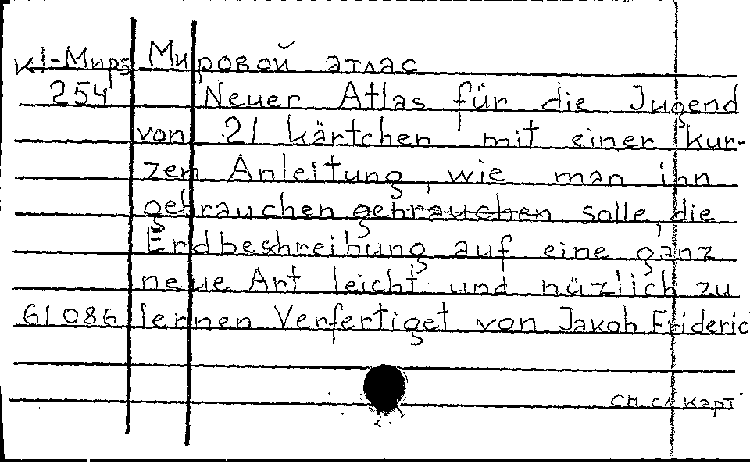 К1-Мир Мировой атлас
254 Neuer Atlas für die Jugend
von 21 kärtchen mit einer kur-
zen Anleitung, wie man ihn
gebrauchen gebrauchen solle, die
Erdbeschreibung auf eine ganz
neue Art leicht und nüzlich zu
61086 lernen Verfertiget von Jakob Frideric
см. сл карт